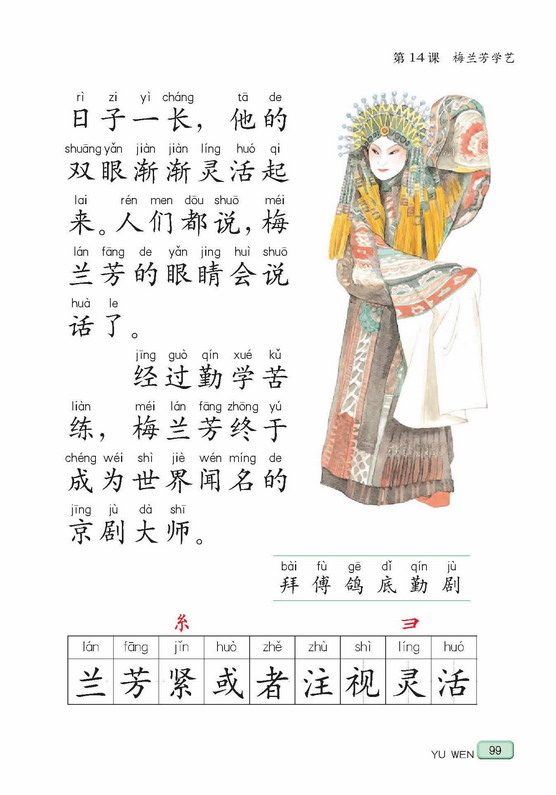 第14课 梅兰芳学艺
rì zi yì cháng tā de
日子一长，他的
shuāng yǎn jiàn jiàn líng huó qi
双眼渐渐灵活起
lai rén men dōu shuō méi
来。人们都说，梅
lán fāng de yǎn jing huì shuō
兰芳的眼睛会说
huà le
话了。
jīng guò qín xué kǔ
经过勤学苦
liàn méi lán fāng zhōng yú
练，梅兰芳终于
chéng wéi shì jiè wén míng de
成为世界闻名的
jīng jù dà shī
京剧大师。
bài fù gē dǐ qín jù
拜傅鸽底勤剧
糸 彐
lán fāng jǐn huò zhě zhù shì líng huó
兰芳紧或者注视灵活
YU WEN 99